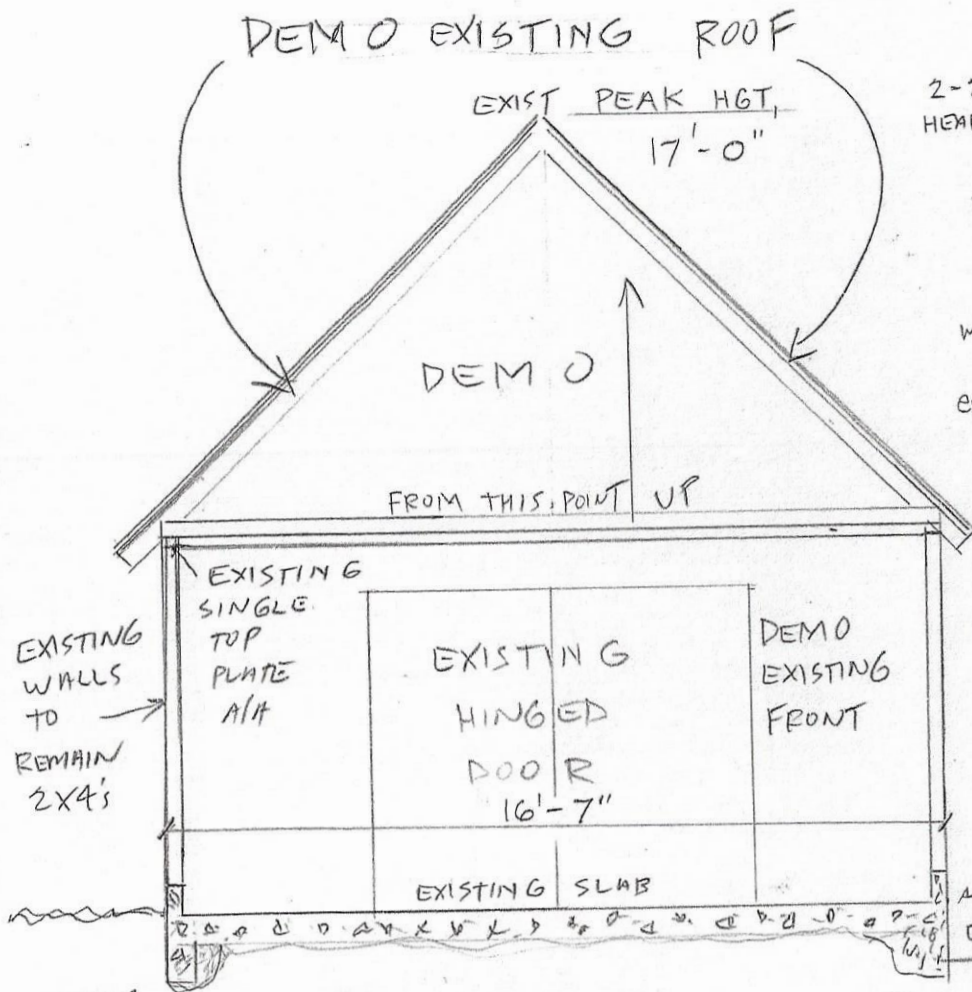 DEMO EXISTING ROOF
EXIST PEAK HGT,
17'-0"
DEMO
FROM THIS POINT UP
EXISTING
SINGLE
TOP
PLATE
A/A
EXISTING
WALLS
TO
REMAIN
2X4's
EXISTING
HINGED
DOOR
16'-7"
DEMO
EXISTING
FRONT
EXISTING SLAB